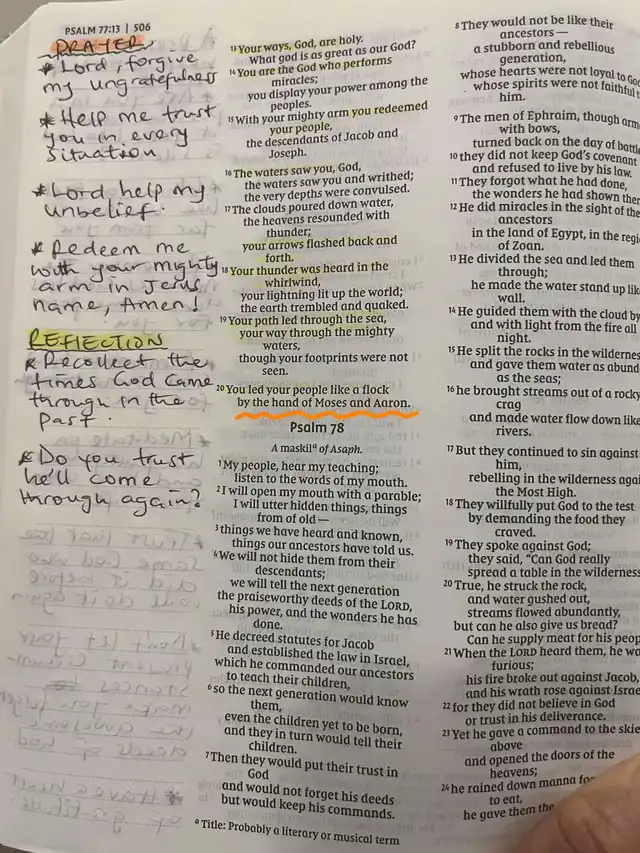 PSALM 77:13 | 506
PRAYER
* Lord, forgive
my ungratefulness
* Help me trust
you in every
situation
* Lord help my
unbelief.
* Redeem me
with your mighty
arm in Jesus
name, Amen!
REFLECTION
* Recollect the
times God came
through in the
past.
* Do you trust
he'll come
through again?
13 Your ways, God, are holy.
What god is as great as our God?
14 You are the God who performs
miracles;
you display your power among the
peoples.
15 With your mighty arm you redeemed
your people,
the descendants of Jacob and
Joseph.
16 The waters saw you, God,
the waters saw you and writhed;
the very depths were convulsed.
17 The clouds poured down water,
the heavens resounded with
thunder;
your arrows flashed back and
forth.
18 Your thunder was heard in the
whirlwind,
your lightning lit up the world;
the earth trembled and quaked.
19 Your path led through the sea,
your way through the mighty
waters,
though your footprints were not
seen.
20 You led your people like a flock
by the hand of Moses and Aaron.
Psalm 78
A maskil a of Asaph.
1 My people, hear my teaching;
listen to the words of my mouth.
2 I will open my mouth with a parable;
I will utter hidden things, things
from of old —
3 things we have heard and known,
things our ancestors have told us.
4 We will not hide them from their
descendants;
we will tell the next generation
the praiseworthy deeds of the LORD,
his power, and the wonders he has
done.
5 He decreed statutes for Jacob
and established the law in Israel,
which he commanded our ancestors
to teach their children,
6 so the next generation would know
them,
even the children yet to be born,
and they in turn would tell their
children.
7 Then they would put their trust in
God
and would not forget his deeds
but would keep his commands.
a Title: Probably a literary or musical term
8 They would not be like their
ancestors —
a stubborn and rebellious
generation,
whose hearts were not loyal to God
whose spirits were not faithful t
him.
9 The men of Ephraim, though arm
with bows,
turned back on the day of battle
10 they did not keep God's covenant
and refused to live by his law.
11 They forgot what he had done,
the wonders he had shown ther
12 He did miracles in the sight of the
ancestors
in the land of Egypt, in the regi
of Zoan.
13 He divided the sea and led them
through;
he made the water stand up lik
wall.
14 He guided them with the cloud by
and with light from the fire all
night.
15 He split the rocks in the wildernes
and gave them water as abund
as the seas;
16 he brought streams out of a rocky
crag
and made water flow down like
rivers.
17 But they continued to sin against
him,
rebelling in the wilderness agai
the Most High.
18 They willfully put God to the test
by demanding the food they
craved.
19 They spoke against God;
they said, "Can God really
spread a table in the wilderness
20 True, he struck the rock,
and water gushed out,
streams flowed abundantly,
but can he also give us bread?
Can he supply meat for his peop
21 When the LORD heard them, he wa
furious;
his fire broke out against Jacob,
and his wrath rose against Israe
22 for they did not believe in God
or trust in his deliverance.
23 Yet he gave a command to the skie
above
and opened the doors of the
heavens;
24 he rained down manna for
to eat,
he gave them the